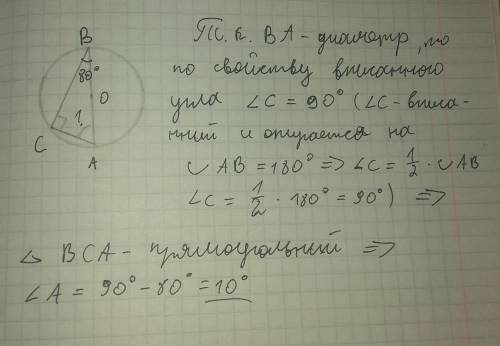 B
80°
O
1.
C
A
Т.к. BA - диаметр, то
по свойству вписанного
угла ∠C = 90° (∠C - вписа-
нный и опирается на
◡ AB = 180° => ∠C = 1/2 · ◡ AB
∠C = 1/2 · 180° = 90°) =>
△ BCA - прямоугольный =>
∠A = 90° - 80° = 10°